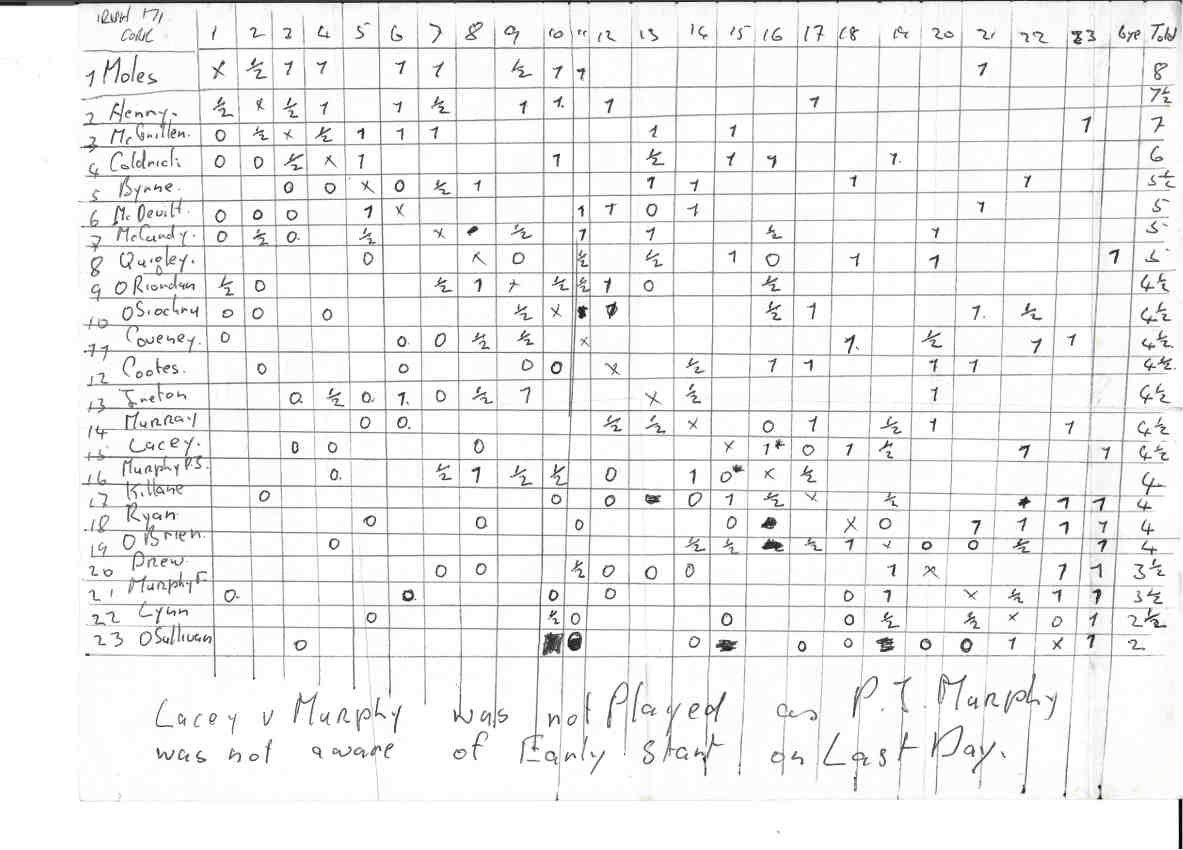 IRISH 71
CORK 1 2 3 4 5 6 7 8 9 10 11 12 13 14 15 16 17 18 19 20 21 22 23 Bye Total
1 Moles x ½ 1 1 1 1 ½ 1 1 1 8
2 Henry. ½ x ½ 1 1 ½ 1 1. 1 1 7½
3 0 ½ x ½ 1 1 1 1 1 1 7
4 0 0 ½ x 1 1 ½ 1 1 1. 6
5 Byrne. 0 0 x 0 ½ 1 1 1 1 1 5½
6 McDevitt. 0 0 0 1 x 1 1 0 1 1 5
7 McCurdy. 0 ½ 0. ½ x ½ 1 1 ½ 1 5
8 Quigley. 0 x 0 ½ ½ 1 0 1 1 1 5
9 O Riordan ½ 0 ½ 1 x ½ ½ 1 0 ½ 4½
10 0 0 0 ½ x ½ 1 1. ½ 4½
11 Coveney. 0 0. 0 ½ ½ x 1. ½ 1 1 4½
12 Cootes. 0 0 0 0 x ½ 1 1 1 1 4½
13 Ireton 0. ½ 0. 1. 0 ½ 1 x ½ 1 4½
14 Murray 0 0. ½ ½ x 0 1 ½ 1 1 4½
15 Lacey. 0 0 0 x 1* 0 1 ½ 1 1 4½
16 Murphy P.J. 0. ½ 1 ½ ½ 0 1 0* x ½ 4
17 Killane 0 0 0 0 1 ½ x ½ 1 1 4
18 Ryan 0 0. 0 0 x 0 1 1 1 1 4
19 O Brien. 0 ½ ½ ½ 1 x 0 0 ½ 1 4
20 Drew. 0 0 ½ 0 0 0 1 x 1 1 3½
21 Murphy F. 0. 0. 0 0 0 1 x ½ 1 1 3½
22 Lynn 0 ½ 0 0 0 ½ ½ x 0 1 2½
23 O Sullivan 0 0 0 0 0 0 1 x 1 2
Lacey v Murphy was not Played as P.J. Murphy
was not aware of Early Start on Last Day.